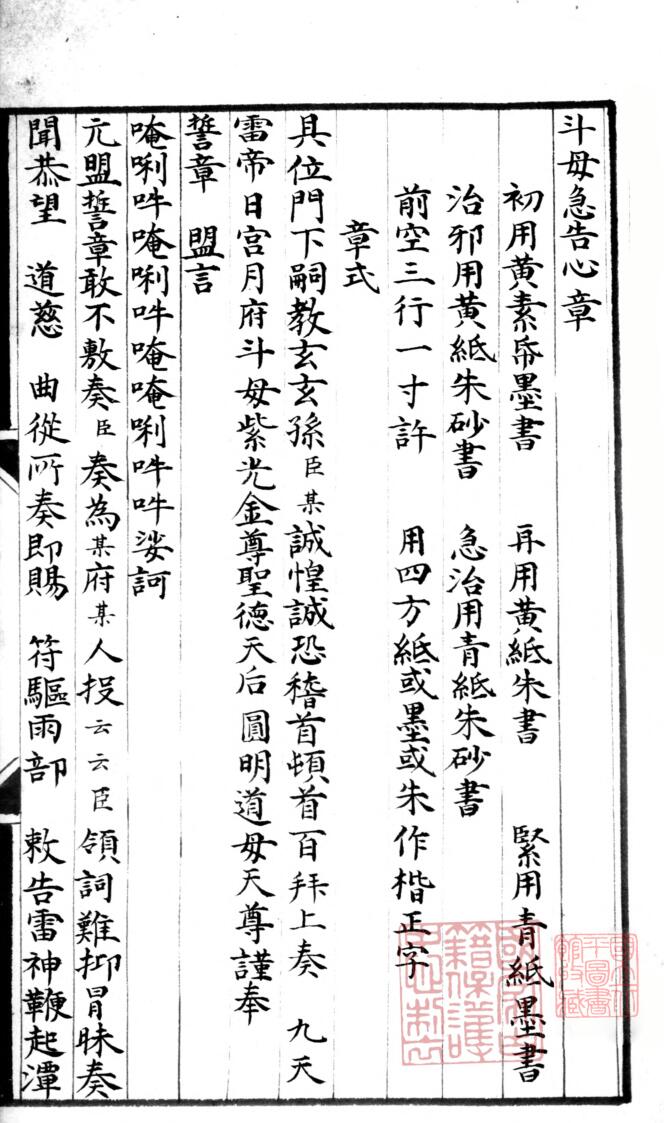 斗母急告心章
初用黄素帋墨書　再用黄紙朱書　緊用青紙墨書
治邪用黄紙朱砂書　急治用青紙朱砂書
前空三行一寸許　用四方紙或墨或朱作楷正字
章式
具位門下嗣教玄玄孫臣某誠惶誠恐稽首頓首百拜上奏　九天
雷帝日宮月府斗母紫光金尊聖德天后圓明道母天尊謹奉
誓章　盟言
唵唎吽唵唎吽唵唵唎吽吽娑訶
元盟誓章敢不敷奏臣奏為某府某人投云云臣領詞難抑冒昧奏
聞恭望　道慈　曲從所奏即賜　符驅雨部　敕告雷神鞭起潭